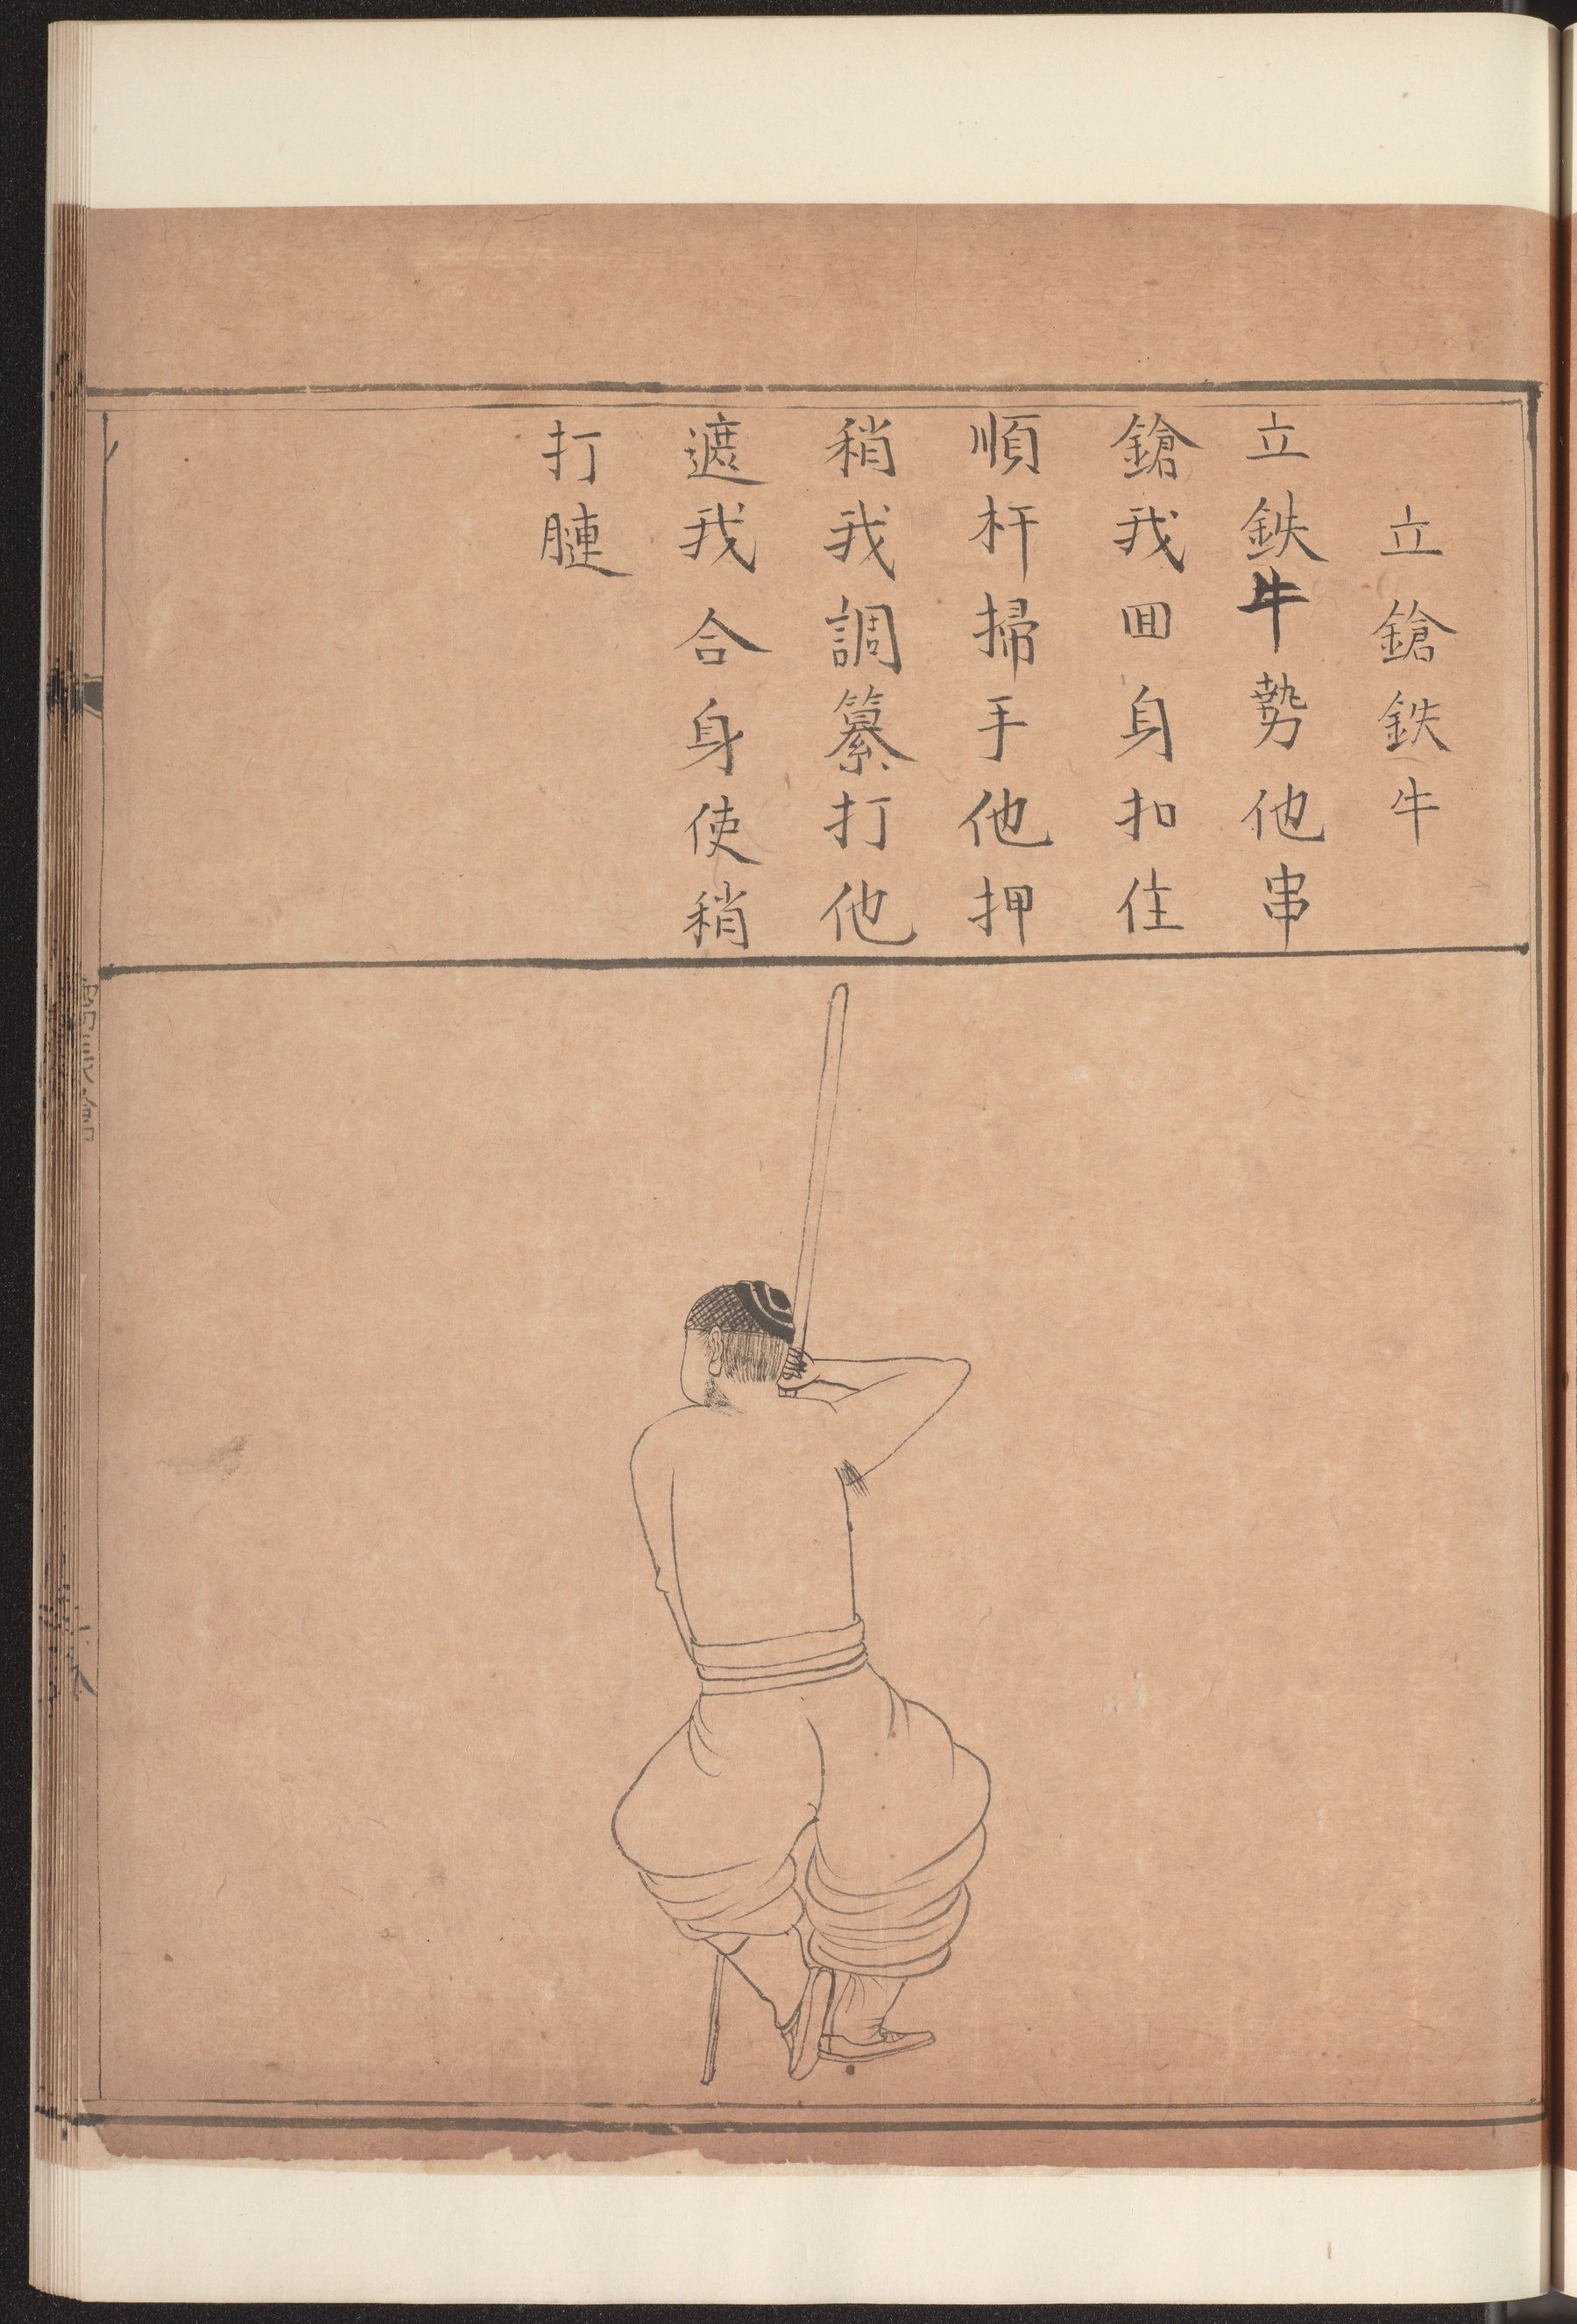 立鎗鉄牛
立鉄牛勢他串
鎗我囬身扣住
順杆掃手他押
稍我調纂打他
遮我合身使稍
打腱